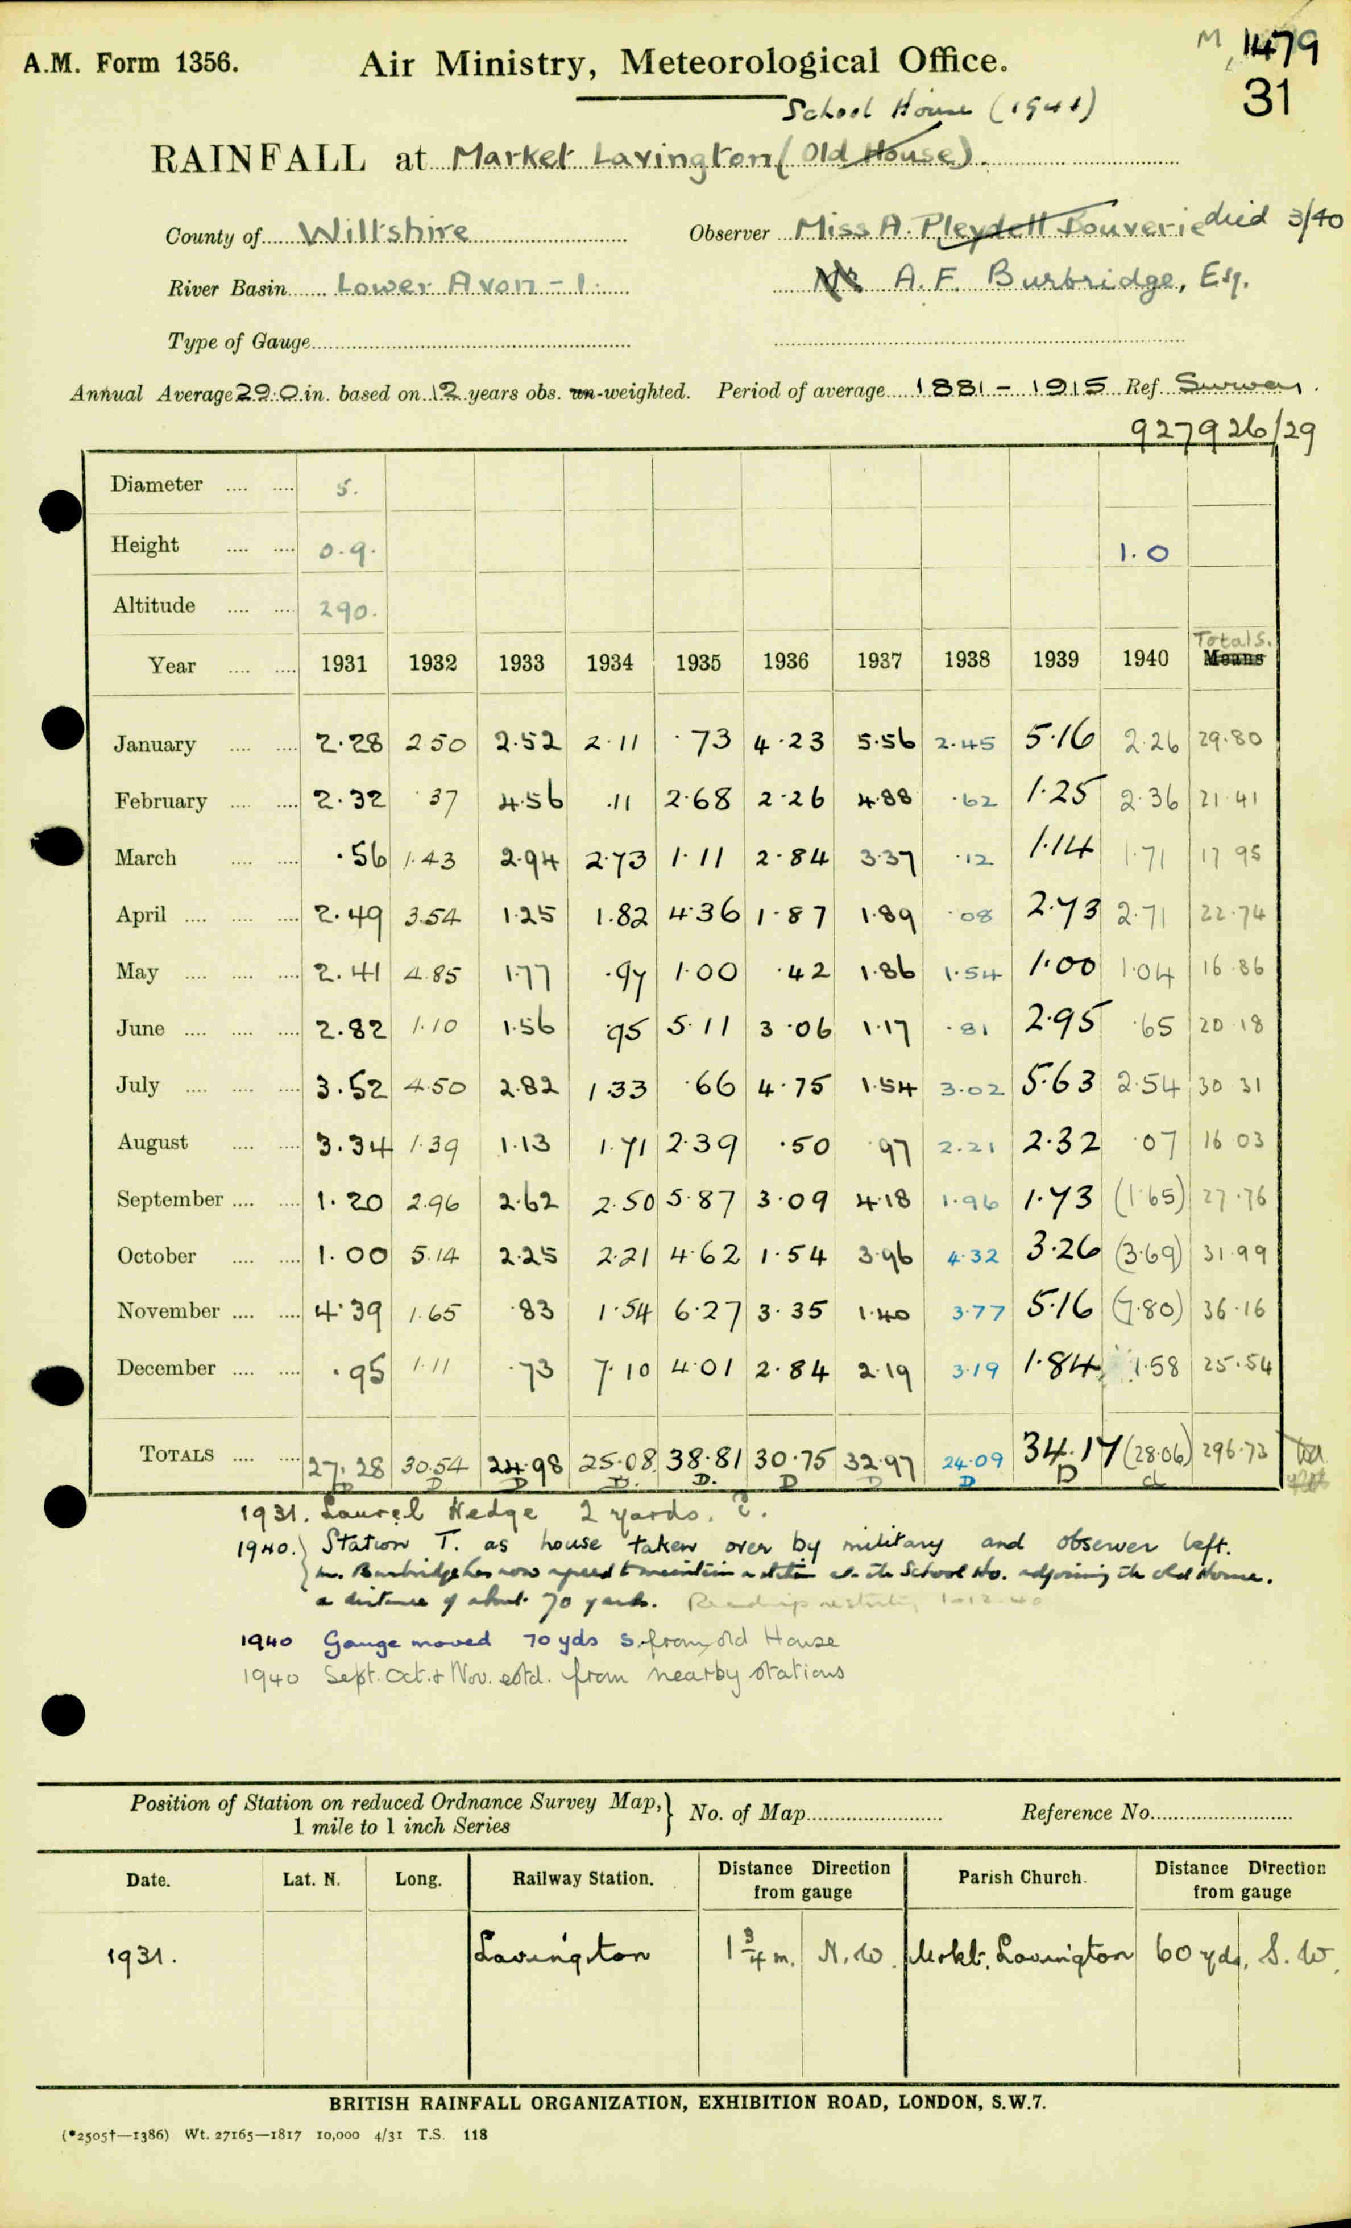 M 1479
A.M. Form 1356. Air Ministry, Meteorological Office.
31
School House (1941)
RAINFALL at Market Lavington (Old House).
County of Wiltshire Observer Miss A. Pleydell Bouverie died 3/40
River Basin Lower Avon - 1. Mr A. F. Burbridge, Esq.
Type of Gauge
Annual Average 29.0 in. based on 12 years obs. un-weighted. Period of average 1881 - 1915 Ref. Survey.
927926/29
Diameter 5.
Height 0.9. 1.0
Altitude 290.
Totals.
Year 1931 1932 1933 1934 1935 1936 1937 1938 1939 1940 Means
January 2.28 2.50 2.52 2.11 .73 4.23 5.56 2.45 5.16 2.26 29.80
February 2.32 .37 4.56 .11 2.68 2.26 4.88 .62 1.25 2.36 21.41
March .56 1.43 2.94 2.73 1.11 2.84 3.37 .12 1.14 1.71 17 95
April 2.49 3.54 1.25 1.82 4.36 1.87 1.89 .08 2.73 2.71 22.74
May 2.41 4.85 1.77 .97 1.00 .42 1.86 1.54 1.00 1.04 16.86
June 2.82 1.10 1.56 .95 5.11 3.06 1.17 .81 2.95 .65 20 18
July 3.52 4.50 2.82 1.33 .66 4.75 1.54 3.02 5.63 2.54 30 31
August 3.34 1.39 1.13 1.71 2.39 .50 .97 2.21 2.32 .07 16 03
September 1.20 2.96 2.62 2.50 5.87 3.09 4.18 1.96 1.73 (1.65) 27.76
October 1.00 5.14 2.25 2.21 4.62 1.54 3.96 4.32 3.26 (3.69) 31.99
November 4.39 1.65 .83 1.54 6.27 3.35 1.40 3.77 5.16 (7.80) 36.16
December .95 1.11 .73 7.10 4.01 2.84 2.19 3.19 1.84 1.58 25.54
TOTALS 27.28 30.54 24.98 25.08 38.81 30.75 32.97 24.09 34.17 (28.06) 296.73
D D D D. D. D D D D d
1931. Laurel Hedge 2 yards.
1940. Station T. as house taken over by military and observer left.
Mr. Burbridge has now agreed to maintain a station at the School Ho. adjoining the old House.
a distance of about 70 yards. Readings restarting 1-12-40
1940 Gauge moved 70 yds S. from old House
1940 Sept. Oct. & Nov. estd. from nearby stations
Position of Station on reduced Ordnance Survey Map,} No. of Map Reference No.
1 mile to 1 inch Series
Date. Lat. N. Long. Railway Station. Distance Direction from gauge Parish Church. Distance Direction from gauge
1931. Lavington 1 3/4 m. N.W. Mrkt. Lavington 60 yds. S.W.
BRITISH RAINFALL ORGANIZATION, EXHIBITION ROAD, LONDON, S.W.7.
(*2505†—1386) Wt. 27165—1817 10,000 4/31 T.S. 118